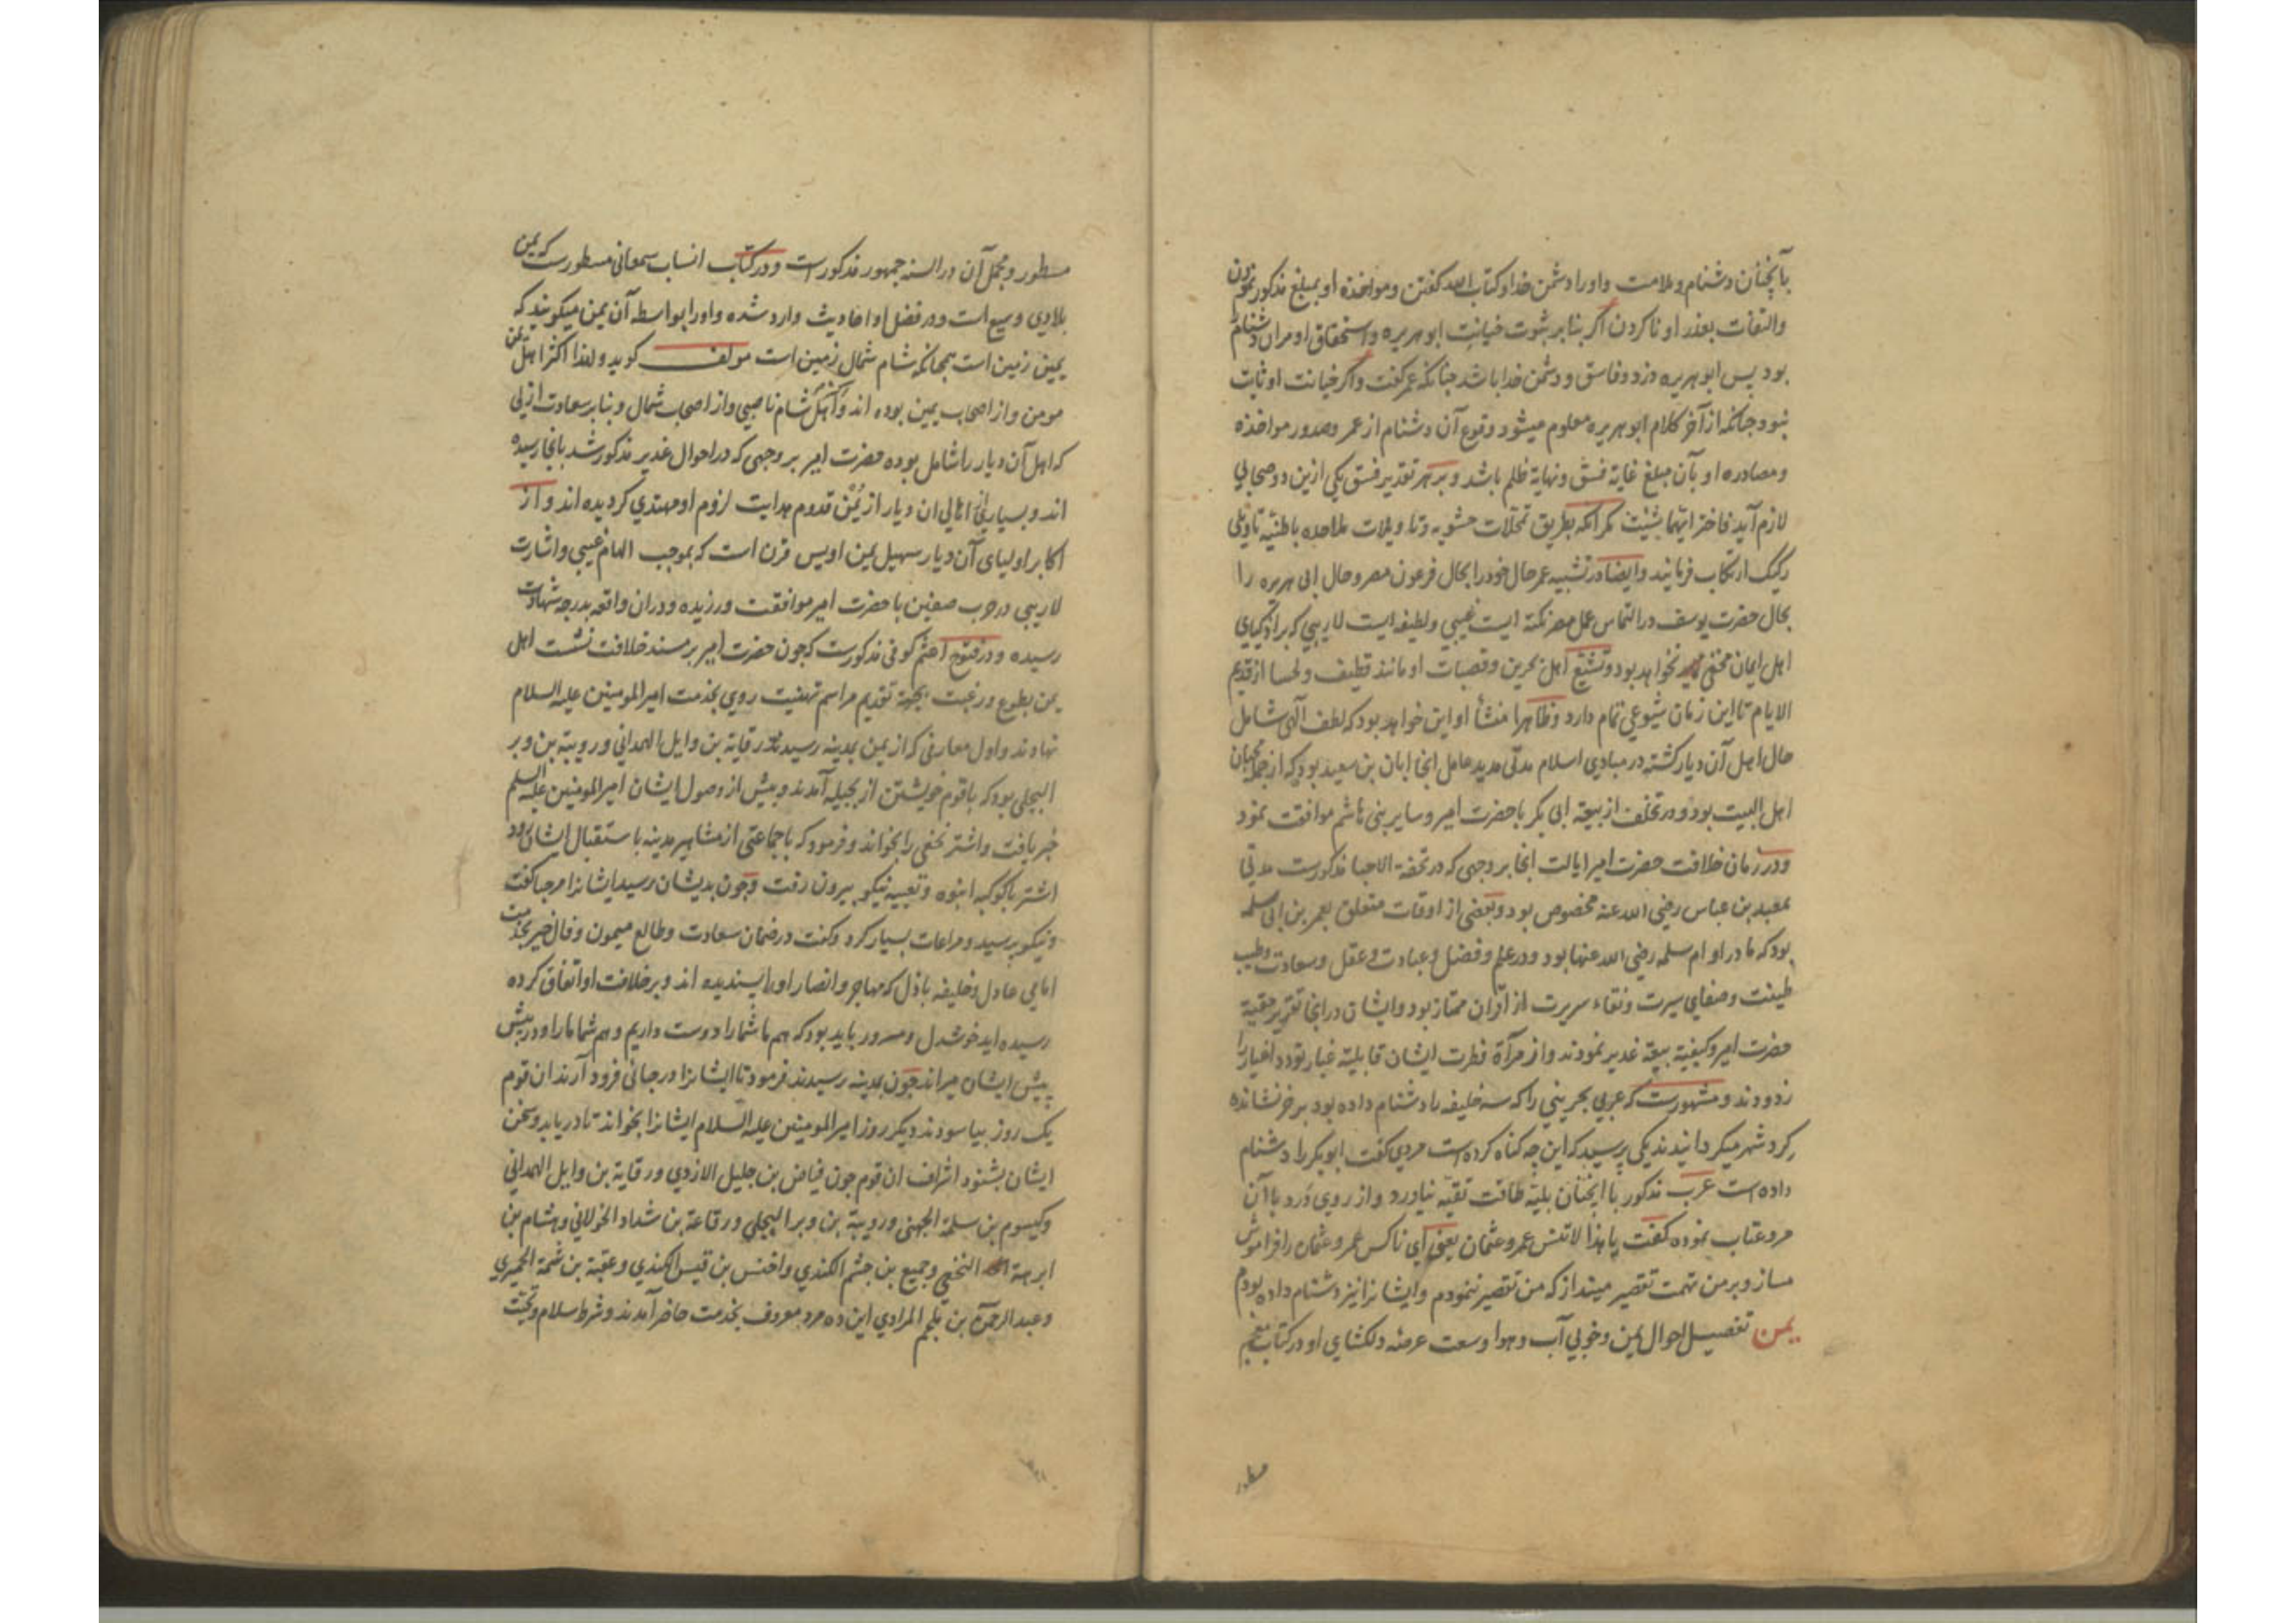 بآنچنان دشنام و ملامت و او را دشمن خدا و کتاب الله گفتن و مواخذه او بمبلغ مذکور نمودن
والتفات بعذر او ناکردن اگر بنا بر ثبوت خیانت ابو هریره و استحقاق او مران دشنام را
بود پس ابو هریره دزد و فاسق و دشمن خدا باشد چنانکه عمر گفت و اگر خیانت او ثابت
نبود چنانکه از آخر کلام ابو هریره معلوم میشود وقوع آن دشنام از عمر و صدور مواخذه
و مصادره او بآن مبلغ غایة فسق و نهایة ظلم باشد و بر هر تقدیر فسق یکی ازین دو صحابی
لازم آید فاختر ایتهما شئت مگر آنکه بطریق تمحلات حشویه و تاویلات ملاحده باطنیه تاویلی
رکیک ارتکاب فرمایند و ایضا در تشبیه عمر حال خود را بحال فرعون مصر و حال ابی هریره را
بحال حضرت یوسف در التماس عمل مصر نکته ایست غیبی و لطیفه ایست لاریبی که بر اذکیای
اهل ایمان مخفی نخواهد بود و تشیع اهل بحرین و قصبات او مانند قطیف و لحسا از قدیم
الایام تا این زمان شیوعی تمام دارد و ظاهرا منشأ او این خواهد بود که لطف الهی شامل
حال اهل آن دیار گشته در مبادی اسلام مدتی مدید عامل انجا ابان بن سعید بود که از جمله محبان
اهل البیت بود و در تخلف از بیعة ابی بکر با حضرت امیر و سایر بنی هاشم موافقت نمود
و در زمان خلافت حضرت امیر ایالت انجا بر وجهی که در تحفة الاحبا مذکورست مدتی
بمعبد بن عباس رضی الله عنه مخصوص بود و بعضی از اوقات متعلق بعمر بن ابی سلمه
بود که مادر او ام سلمه رضی الله عنها بود و در علم و فضل و عبادت و عقل و سعادت و طیب
طینت و صفای سیرت و نقاء سریرت از اقران ممتاز بود و ایشان در انجا تقریر حقیة
حضرت امیر و کیفیة بیعة غدیر نمودند و از مرآة فطرت ایشان قابلیة غبار تودد اغیار را
زدودند و مشهورست که عربی بحرینی را که سه خلیفه را دشنام داده بود بر خر نشانده
گرد شهر میگردانیدند یکی پرسید که این چه گناه کرده است مردی گفت ابو بکر را دشنام
داده است عرب مذکور با انچنان بلیه طاقت تقیه نیاورد و از روی درد با آن
مرد عتاب نموده گفت یا هذا لا تنس عمر و عثمان یعنی ای ناکس عمر و عثمان را فراموش
مساز و بر من تهمت تقصیر مینداز که من تقصیر ننمودم و ایشانرا نیز دشنام داده بودم
یمن تفصیل احوال یمن و خوبی آب و هوا و سعت عرصه دلکشای او در کتاب معجم
مسطور
مسطور و مجمل آن در السنه جمهور مذکور است و در کتاب انساب سمعانی مسطورست که یمن
بلادی وسیع است و در فضل او احادیث وارد شده و او را بواسطه آن یمن میگویند که
یمین زمین است همچنانکه شام شمال زمین است مولف گوید و لهذا اکثر اهل یمن
مومن و از اصحاب یمین بوده اند و اهل شام ناصبی و از اصحاب شمال و بنا بر سعادت ازلی
که اهل آن دیار را شامل بوده حضرت امیر بر وجهی که در احوال غدیر مذکور شد بانجا رسیده
اند و بسیاری اهالی ان دیار از یمن قدوم هدایت لزوم او مهتدی گردیده اند و از
اکابر اولیای آن دیار سهیل یمن اویس قرن است که بموجب الهام غیبی و اشارت
لاریبی در حرب صفین با حضرت امیر موافقت ورزیده و دران واقعه بدرجه شهادت
رسیده و در فتوح اعثم کوفی مذکورست که چون حضرت امیر بر مسند خلافت نشست اهل
یمن بطوع و رغبت بجهة تقدیم مراسم تهنیت روی بخدمت امیر المومنین علیه السلام
نهادند و اول معارفی که از یمن بمدینه رسیدند رقایة بن وایل الهمدانی و رویبة بن وبر
البجلی بود که با قوم خویشتن از بجیله آمدند و پیش از وصول ایشان امیر المومنین علیه السلم
خبر یافت و اشتر نخعی را بخواند و فرمود که با جماعتی از مشاهیر مدینه باستقبال ایشان رود
اشتر با کوکبه انبوه و تعبیه نیکو بیرون رفت و چون بدیشان رسید ایشانرا مرحبا گفت
و نیکو پرسید و مراعات بسیار کرد و گفت در ضمان سعادت و طالع میمون و فال خیر بخدمت
امامی عادل و خلیفه باذل که مهاجر و انصار او را پسندیده اند و بر خلافت او اتفاق کرده
رسیده اید خوشدل و مسرور باید بود که هم ما شما را دوست داریم و هم شما ما را و در پیش
پیش ایشان میراند چون بمدینه رسیدند فرمود تا ایشانرا در جائی فرود آرند ان قوم
یک روز بیاسودند دیگر روز امیر المومنین علیه السلام ایشانرا بخواند تا دریابد و سخن
ایشان بشنود اشراف ان قوم چون فیاض بن جلیل الازدی و رقایة بن وایل الهمدانی
و کیسوم بن سلمة الجهنی و رویبة بن وبر البجلی و رفاعة بن شداد الخولانی و هشام بن
ابرهة النخعی و جمیع بن جشم الکندی و اخنس بن قیس الکندی و عقبة بن الحمیری
و عبد الرحمن بن ملجم المرادی این ده مرد معروف بخدمت حاضر آمدند و شرط سلام و تحیت